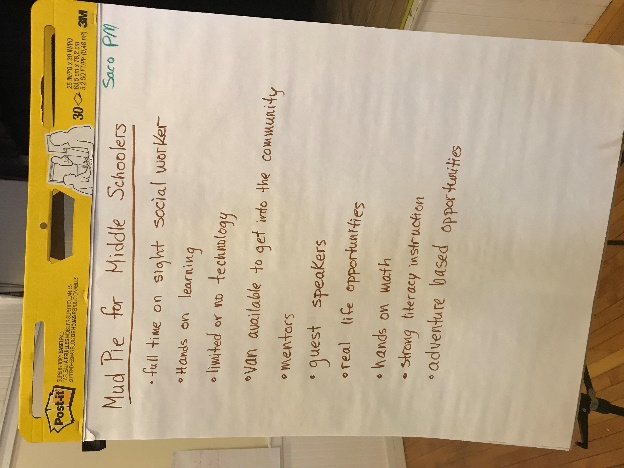 Saco PM
Mud Pie for Middle Schoolers
• full time on sight social worker
• Hands on learning
• limited or no technology
• Van available to get into the community
• mentors
• guest speakers
• real life opportunities
• hands on math
• strong literacy instruction
• adventure based opportunities
Post-it
30
3M